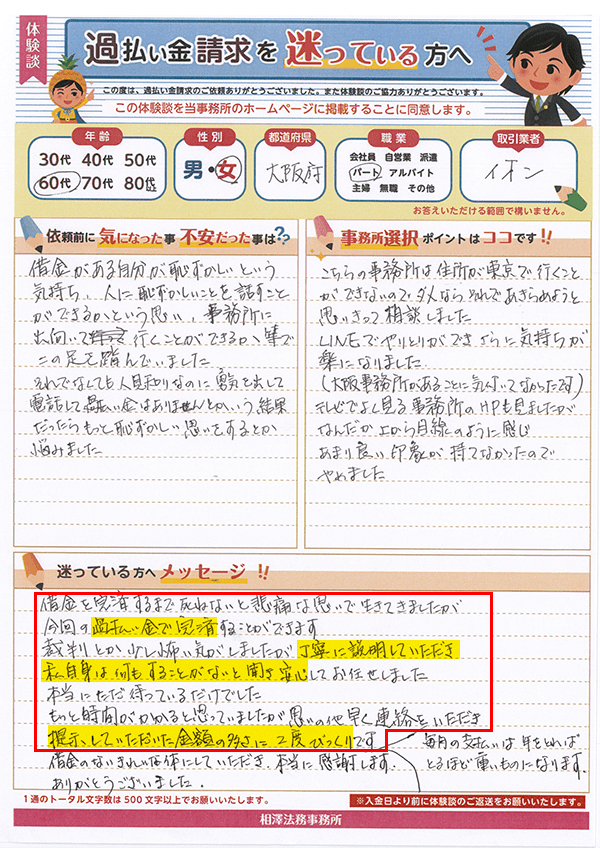 体験談
過払い金請求を迷っている方へ
この度は、過払い金請求のご依頼ありがとうございました。また体験談のご協力ありがとうございます。
この体験談を当事務所のホームページに掲載することに同意します。
年齢
30代 40代 50代
60代 70代 80代以上
性別
男・女
都道府県
大阪府
職業
会社員 自営業 派遣
パート アルバイト
主婦 無職 その他
取引業者
イオン
お答えいただける範囲で構いません。
依頼前に気になった事 不安だった事は??
借金がある自分が恥ずかしいという
気持ち、人に恥ずかしいことを話すこと
ができるかという思い、事務所に
出向いて行くことができるか等で
二の足を踏んでいました
それでなくても人見知りなのに勇気を出して
電話して過払い金はありませんとかいう結果
だったらもっと恥ずかしい思いをするとか
悩みました
事務所選択ポイントはココです!!
こちらの事務所は住所が東京で行くこと
ができないのでダメならそれであきらめようと
思いきって相談しました
LINEでやりとりができ さらに気持ちが
楽になりました
(大阪事務所があることに気付いてなかったです)
テレビでよく見る事務所のHPも見ましたが
なんだか上から目線のように感じ
あまり良い印象が持てなかったので
やめました
迷っている方へメッセージ!!
借金を完済するまで死ねないと悲痛な思いで生きてきましたが
今回の過払い金で完済することができます
裁判とか少し怖い気がしましたが丁寧に説明していただき
私自身は何もすることがないと聞き安心してお任せしました
本当にただ待っているだけでした
もっと時間がかかると思っていましたが思いの他早く連絡をいただき
提示していただいた金額の多さに二度びっくりです
毎月の支払いは年をとれば
とるほど重いものになります
借金のないきれいな体にしていただき、本当に感謝します
ありがとうございました。
1通のトータル文字数は500文字以上でお願いいたします。
※入金日より前に体験談のご返送をお願いいたします。
相澤法務事務所